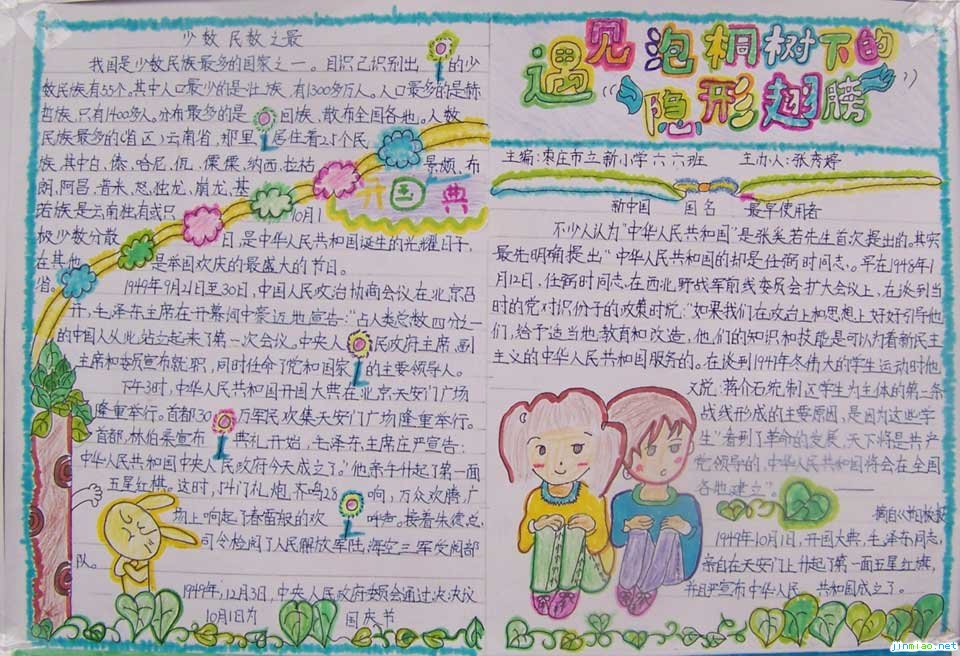 少数民数之最
我国是少数民族最多的国家之一。目识已识别出的少
数民族有55个,其中人口最少的是壮族,有1300多万人。人口最多的是赫
哲族,只有1400多人。分布最多的是回族,散布全国各地。人数
民族最多的(省区)云南省,那里居住着25个民
族,其中白、傣、哈尼、佤、傈僳、纳西、拉祜、景颇、布
朗、阿昌、普米、怒、独龙、崩龙、基
若族是云南独有或只
极少数分散
在其他
省。
开国典
10月1
日,是中华人民共和国诞生的光耀日子,
是举国欢庆的最盛大的节日。
1949年9月21日至30日,中国人民政治协商会议在北京召
开,毛泽东主席在开幕词中豪迈地宣告:“占人类总数四分之一
的中国人从此站立起来了第一次会议。中央人民政府主席,副
主席和委员宣布就职,同时任命了党和国家的主要领导人。
下午3时,中华人民共和国开国大典在北京天安门广场
隆重举行。首都30万军民欢集天安门广场隆重举行。
首都,林伯渠宣布典礼开始,毛泽东主席庄严宣告:
中华人民共和国中央人民政府今天成立了。”他亲手升起了第一面
五星红旗。这时,54门礼炮齐鸣28响,万众欢腾,广
场上响起了春雷般的欢呼声。接着朱德总
司令检阅了人民解放军陆、海、空三军受阅部
队。
1949年,12月3日,中央人民政府委员会通过决决议
10月1日为国庆节
遇见泡桐树下的
“隐形翅膀”
主编:枣庄市立新小学六六班 主办人:张秀婷
新中国 国名 最早使用者
不少人认为“中华人民共和国”是张奚若先生首次提出的。其实
最先明确提出“中华人民共和国的却是任弼时同志。早在1948年1
月12日,任弼时同志,在西北野战军前线委员会扩大会议上,在谈到当
时的党对识份子的政策时说:“如果我们在政台上和思想上好好引导他
们,给予适当地教育和改造,他们的知识和技能是可以为看新民主
主义的中华人民共和国服务的。在谈到1947年冬伟大的学生运动时他
又说:蒋介石统制区学生为主体的第二条
战线形成的主要原因,是因为这些学
生”看到了革命的发展,天下将是共产
党领导的,中华人民共和国将会在全国
各地建立”。
摘自
1949年10月1日,开国大典,毛泽东同志,
亲自在天安门上升起了第一面五星红旗,
并且严宣布中华人民共和国成立了。
jinmiao.net